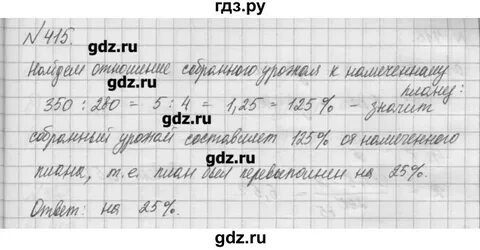 гдз.ру
№415.
gdz.ru gdz.ru
Найдем отношение собранного урожая к намеченному
плану:
350 : 280 = 5 : 4 = 1,25 = 125% – значит
gdz.ru gdz.ru
собранный урожай составляет 125% от намеченного
gdz.ru
плана, т.е. план был перевыполнен на 25%.
gdz.ru
Ответ: на 25%.
gdz.ru